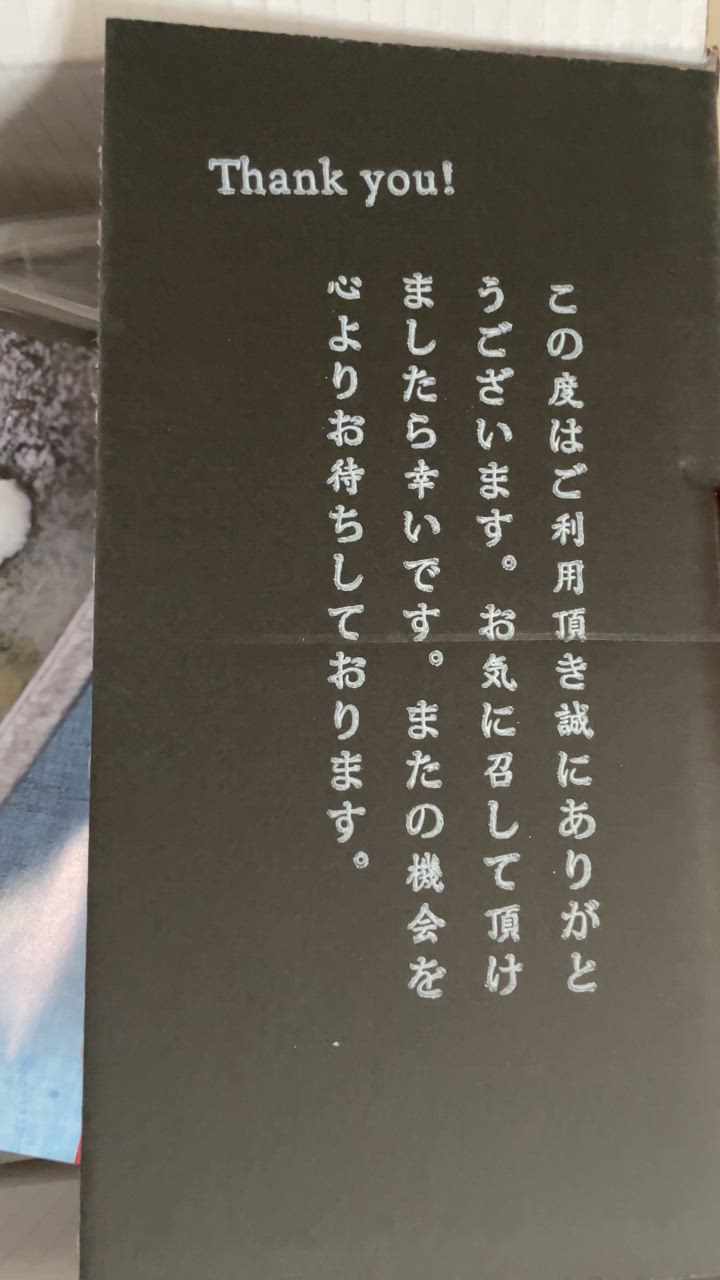 Thank you!
この度はご利用頂き誠にありがと
うございます。お気に召して頂け
ましたら幸いです。またの機会を
心よりお待ちしております。